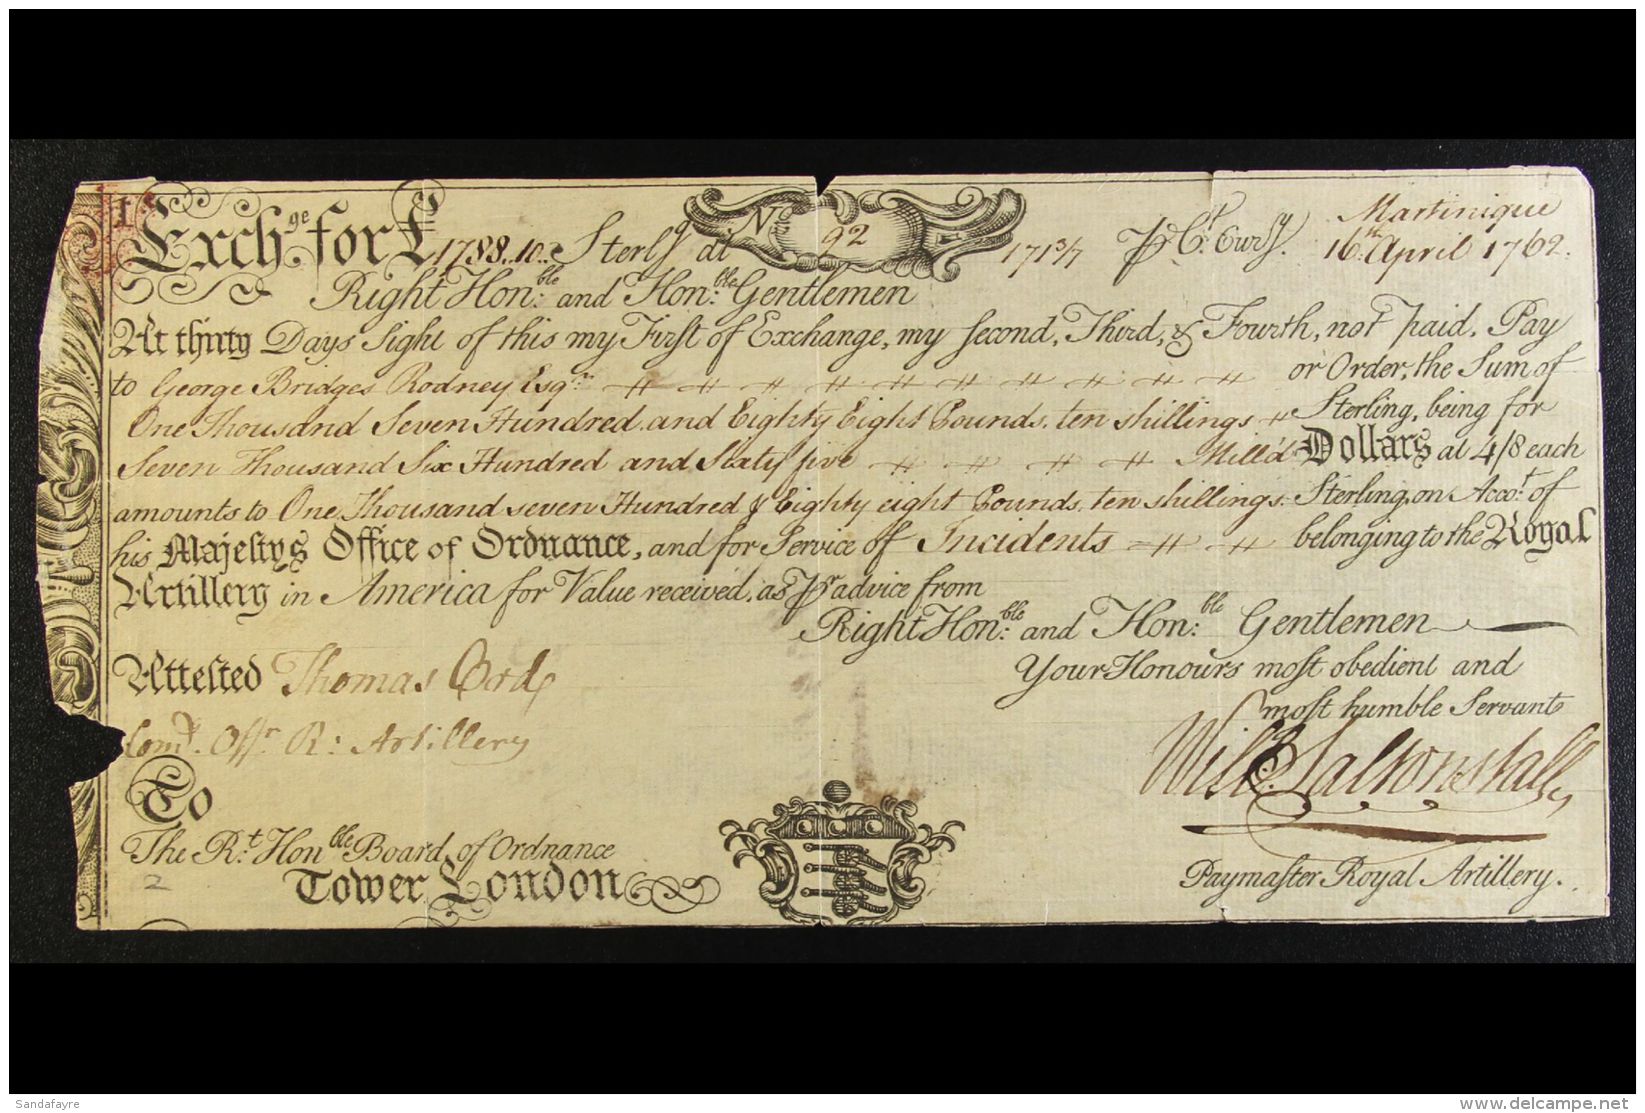 Exch.ge for £ 1788..10.. Sterlg at No. 92 171 3/7 P Ct. Curry. Martinique
16th. April 1762.
Right Hon.ble and Hon.ble Gentlemen
At thirty Days Sight of this my First of Exchange, my Second, Third, & Fourth, not paid. Pay
to George Bridges Rodney Esqr. or Order, the Sum of
One Thousand Seven Hundred and Eighty Eight Pounds, ten shillings Sterling, being for
Seven Thousand Six Hundred and Sixty five Mill'd Dollars at 4/8 each
amounts to One Thousand seven Hundred & Eighty eight Pounds, ten shillings. Sterling, on Acco.t of
his Majestys Office of Ordnance, and for Service of Incidents belonging to the Royal
Artillery in America for Value received, as Pr advice from
Right Hon.ble and Hon.ble Gentlemen
Your Honours most obedient and
most humble Servant
Attested Thomas Ord,
Comd. Offr. R: Artillery
Will. Saltonstall,
To
The R.t Honble Board of Ordnance
Tower London
2
Paymaster Royal Artillery.
Sandafayre
www.delcampe.net